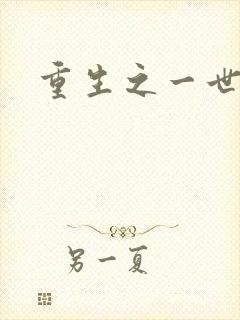 重生之一世
另一夏